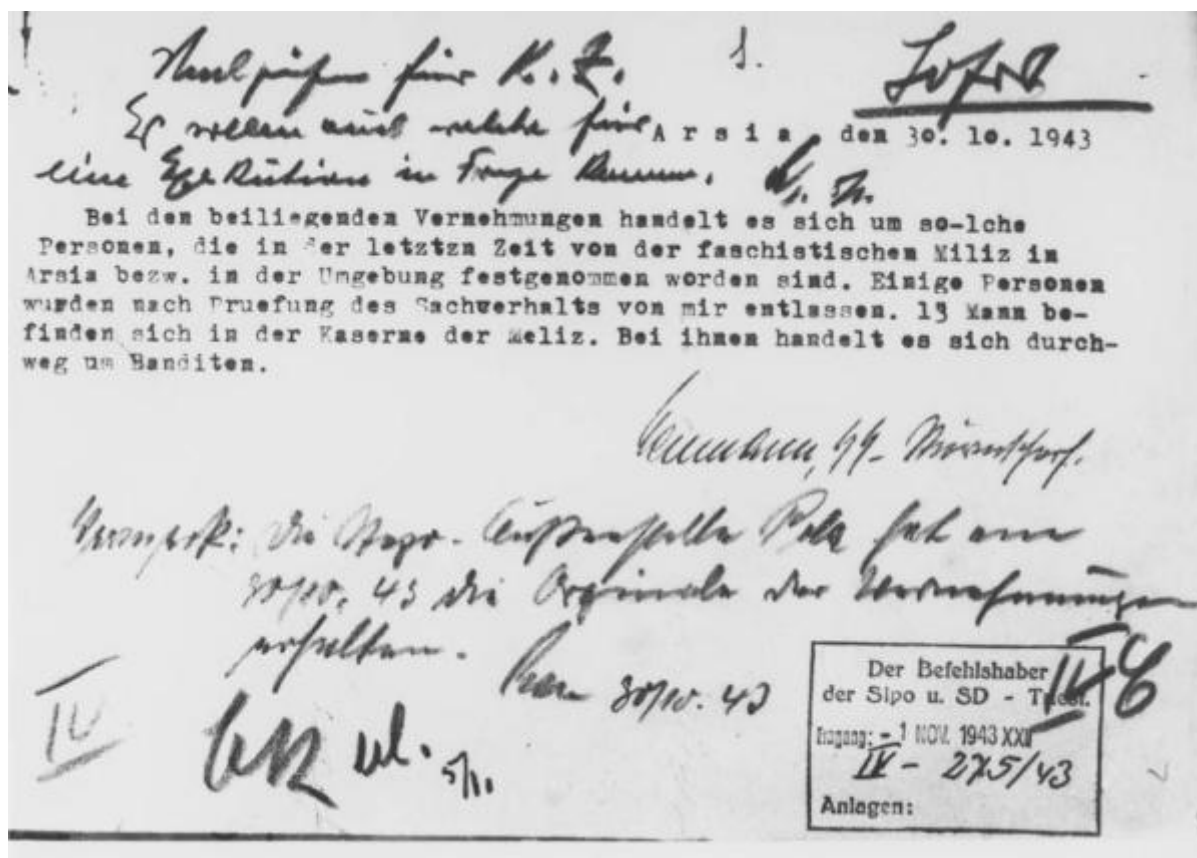 1.
Sofort
für K.Z.
Es sollen auch welche für
Arsia, den 30. 10. 1943
eine Exekution in Frage kommen.
Bei den beiliegenden Vernehmungen handelt es sich um so-lche
Personen, die in der letztzn Zeit von der faschistischen Miliz in
Arsia bezw. in der Umgebung festgenommen worden sind. Einige Personen
wurden nach Pruefung des Sachverhalts von mir entlassen. 13 Mann be-
finden sich in der Kaserne der Meliz. Bei ihnen handelt es sich durch-
weg um Banditen.
SS-
Vermerk: Die Stapo-Außenstelle Pola hat am
30/10. 43 die Orginale der Vernehmungen
erhalten.
30/10. 43
IV
5/11.
Der Befehlshaber
der Sipo u. SD - Triest.
IV
Eingang: - 1 NOV. 1943 XXII
IV - 275/43
Anlagen: